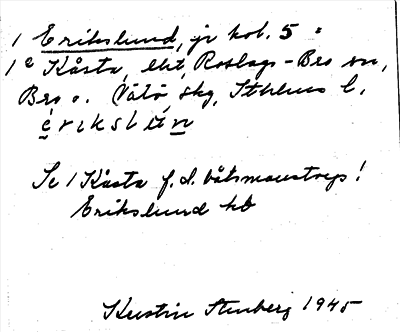 1 Erikslund, jr kol. 5 :
1 e Kårsta, ekt, Roslags-Bro sn,
Bro o. Vätö skg, Sthlms l.
erikslun
Se 1 Kårsta f.d. båtsmanstorp!
Erikslund
Kerstin Stenberg 1945